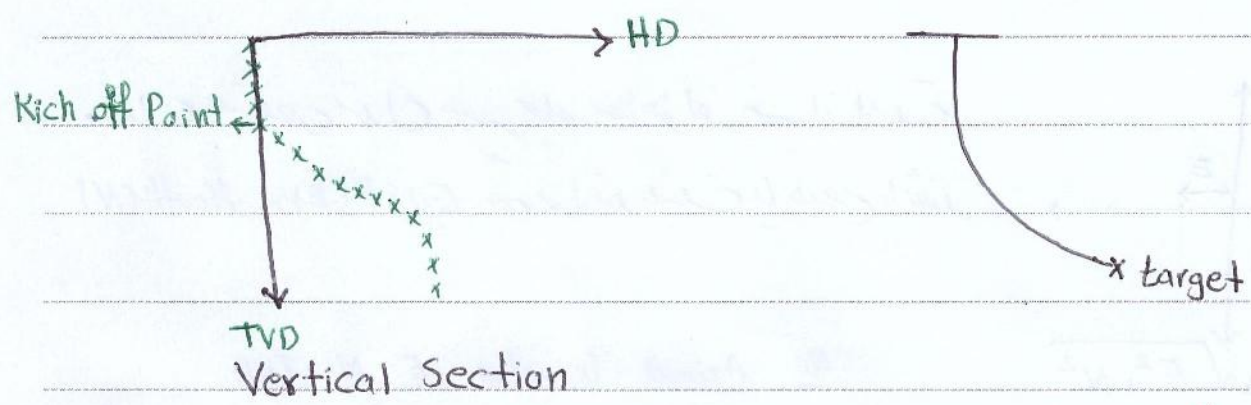 HD
Kich off Point
target
TVD
Vertical Section